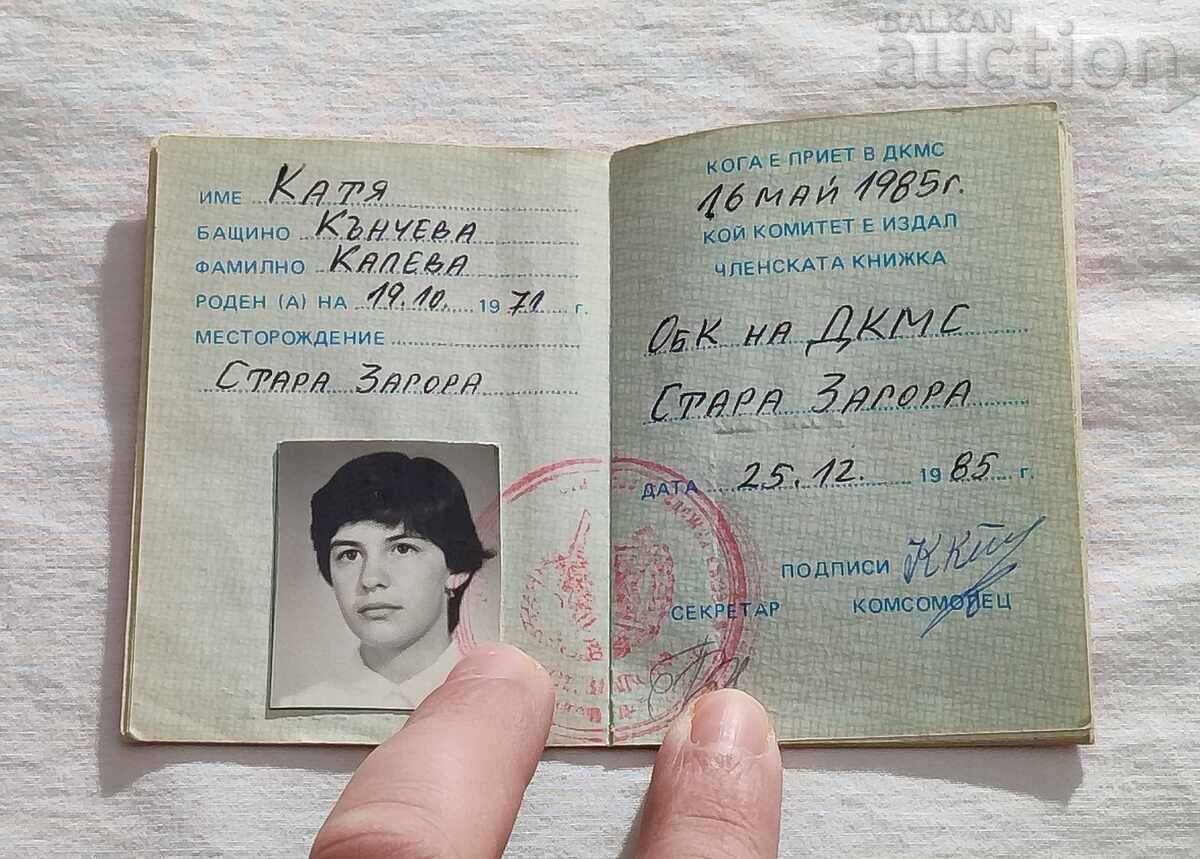 BALKAN
auction
ИМЕ КАТЯ
БАЩИНО КЪНЧЕВА
ФАМИЛНО КАЛЕВА
РОДЕН (А) НА 19.10. 1971 г.
МЕСТОРОЖДЕНИЕ
СТАРА ЗАГОРА
КОГА Е ПРИЕТ В ДКМС
16 МАЙ 1985г.
КОЙ КОМИТЕТ Е ИЗДАЛ
ЧЛЕНСКАТА КНИЖКА
ОбК НА ДКМС
СТАРА ЗАГОРА
ДАТА 25.12. 1985 г.
ПОДПИСИ
СЕКРЕТАР КОМСОМОЛЕЦ